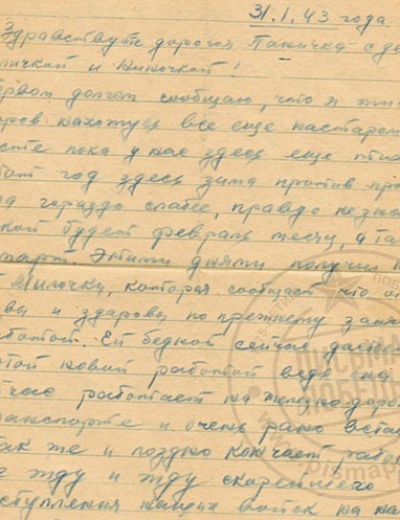 31.1.43 года
Здравствуйте дорогая Паничка с де
личкой и Ниночкой!
ервом долгом сообщаю, что я жи
доров нахожусь все еще на старом
есте пока у нас здесь еще
тот год здесь зима против про
да гораздо слабее, правдо незна
кой будет февраль месяц, а та
март Этими днями получил
от Милочки, которая сообщает что о
вы и здаровы по прежнему заня
ботой. Ей бедной сейчас
этой новой работой ведь она
йчас работает на железно доро
ранспорте и очень рано вста
так же и поздно кончает рабо
жду и жду скорейшего
ступления наших войск на на
ПИСЬМА
ПОБЕДЫ